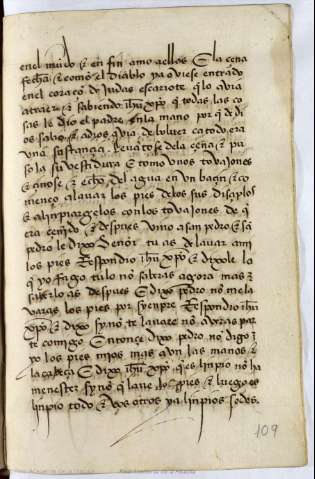 en el mundo & en fin amo aellos E la çena
fecha & como el diablo ya oviese entrado
en el coraçō de Judas escariote q̄ lo avia
atraer & sabiendo ihū xp̄o q̄ todas las co
sas le dio el padre en la mano por q̄ de di
os salio & adios avia de bolver ca todo era
vna sustançia Levātose dela çena & pu
so la su vestidura E tomo vnos tovajones
& çiñose & echo del agua en vn baçin & co
menço alavar los pies delos sus disçiplos
& alinpiargelos conlos tovajones de q̄
era çeñido & despues vino a san pedro E sā
pedro le dixo Señor tu as de lavar ami
los pies Respondio ihū xp̄o & dixole lo
q̄ yo fago tu lo no sabras agora mas
saberlo as despues E dixo pedro no me la
varas los pies por syenpre Respondio ihū
xp̄o & dixo sy no te lavare no averas par
te comigo Entonçe dixo pedro no digo
yo los pies mios mas avn las manos &
la cabeça E dixo ihū xp̄o q̄ es linpio no ha
menester sy no q̄ lave los pies & luego es
linpio todo & vos otros ya linpios sodes.
109